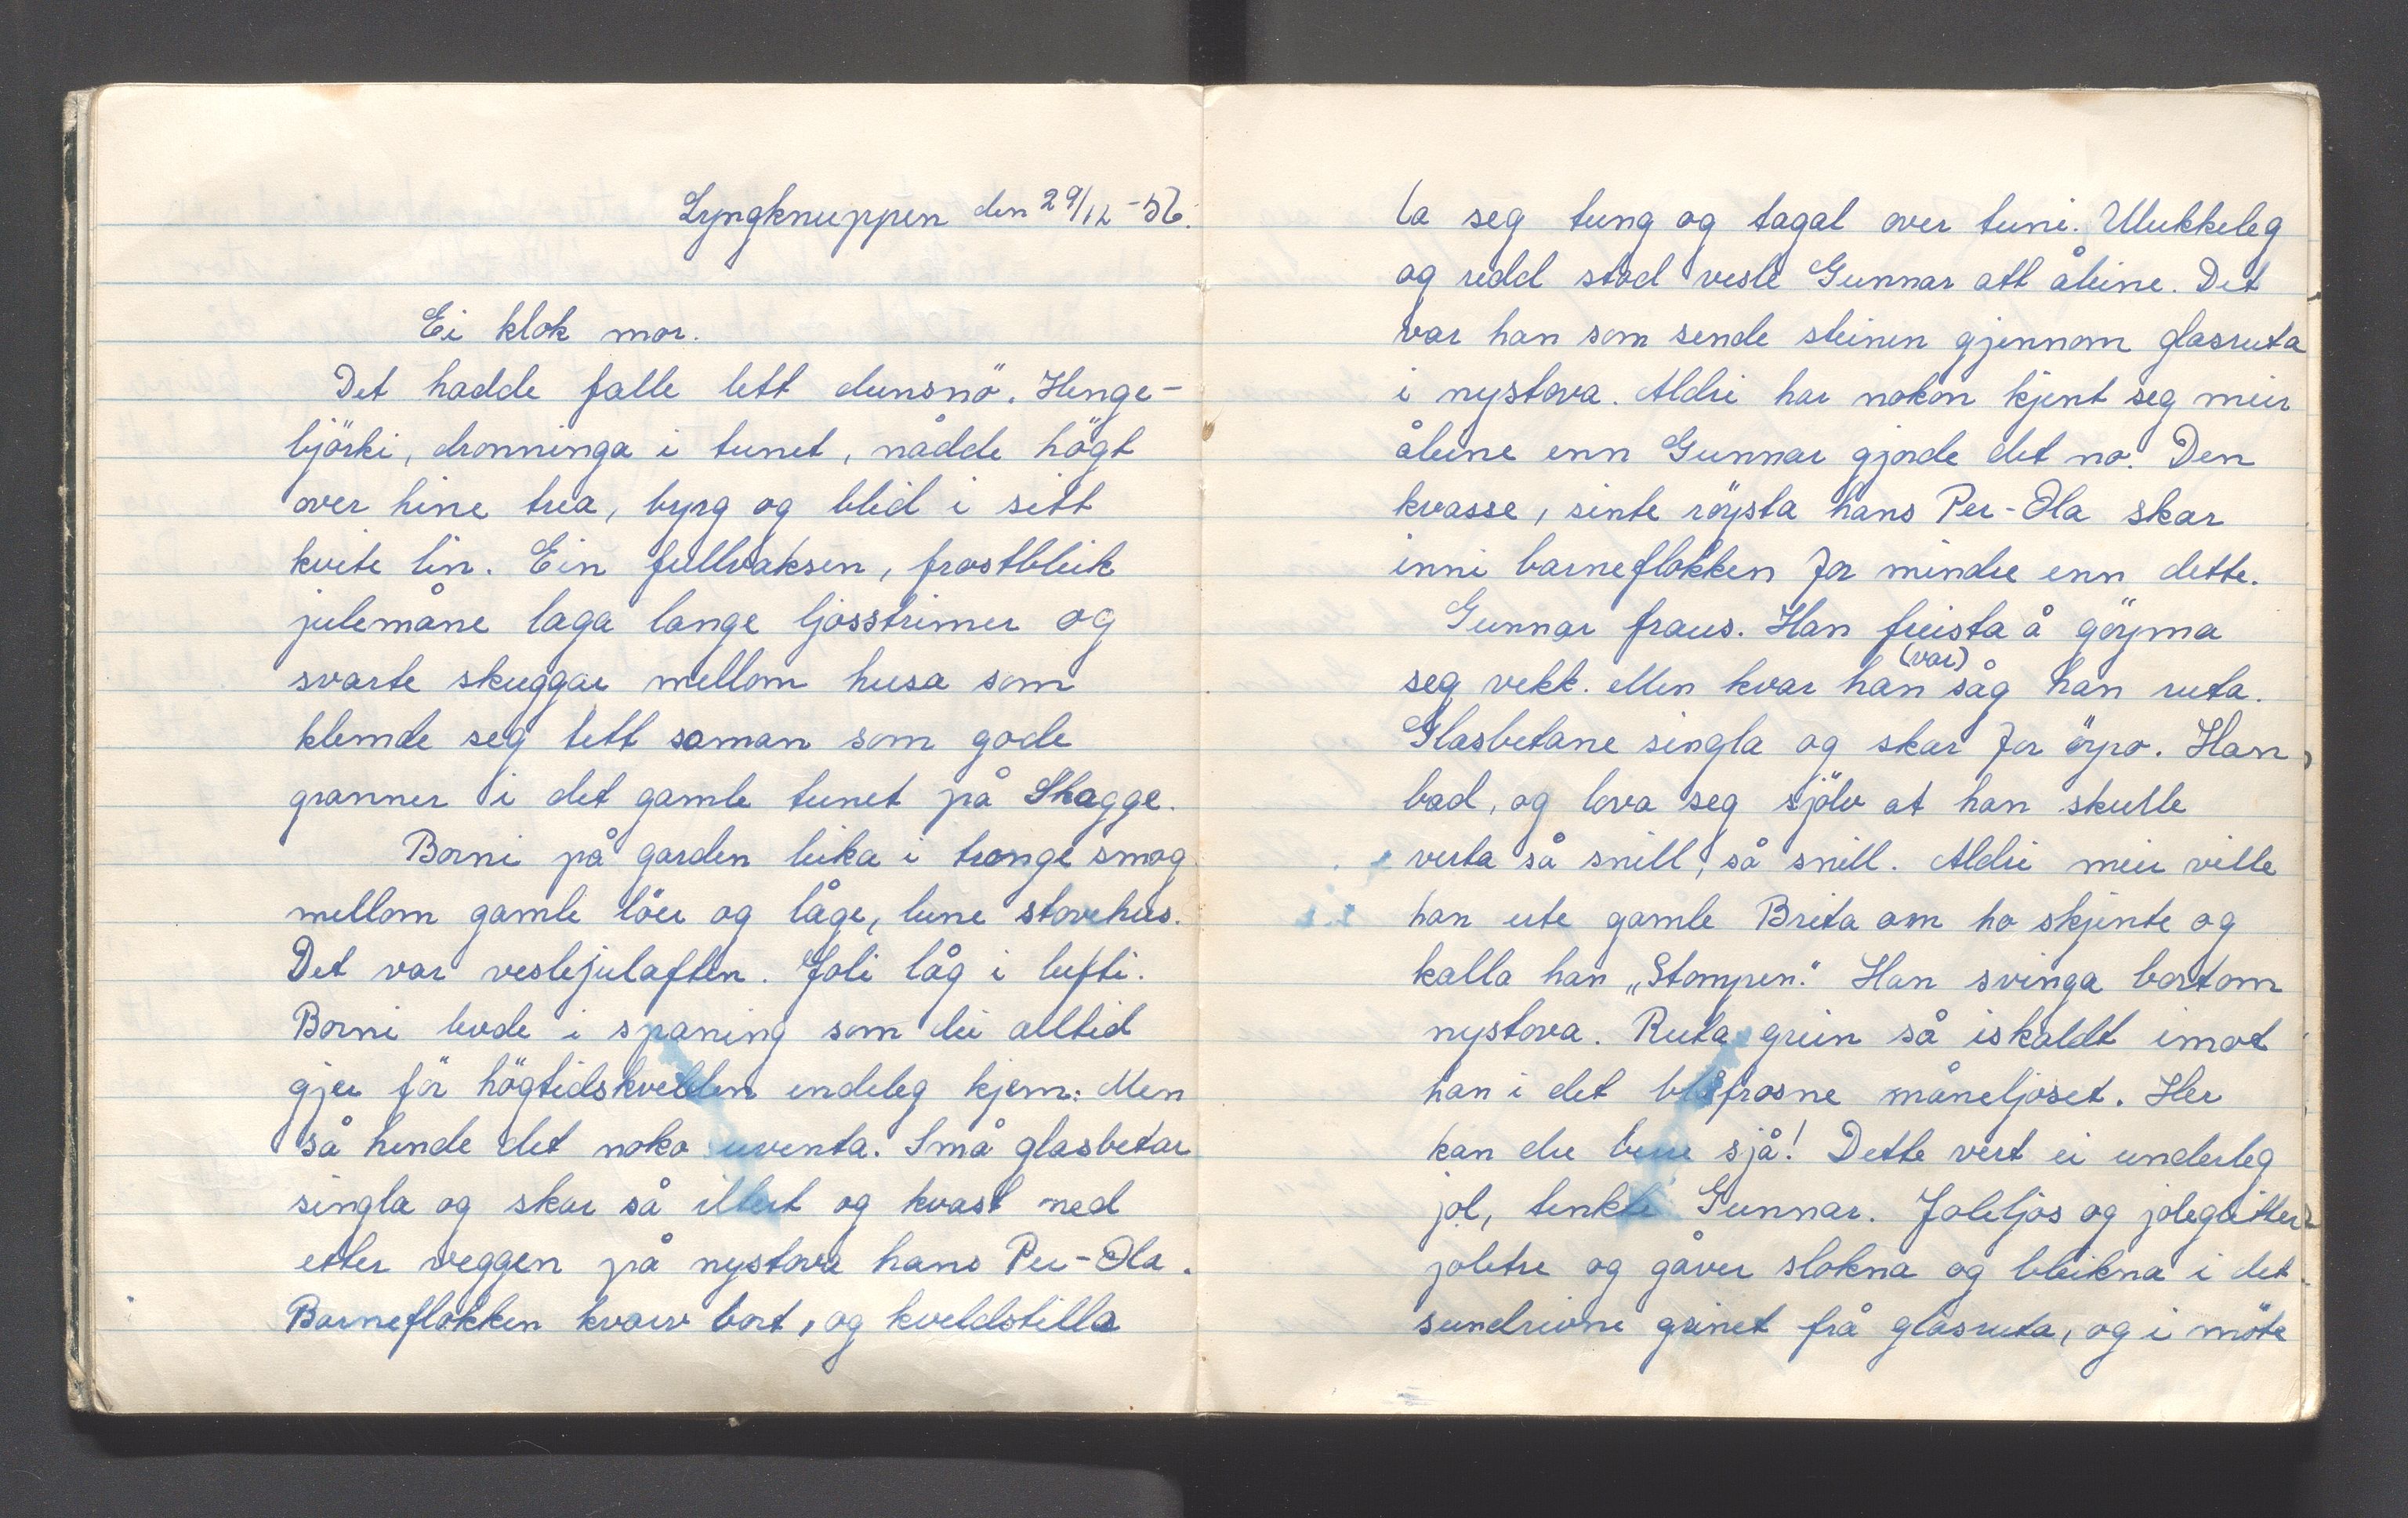 Lyngknuppen den 29/12-56.
Ei klok mor.
Det hadde falle lett dunsnö. Henge-
björki, dronninga i tunet, nådde högt
over hine trea, byrg og blid i sitt
kvite lin. Ein fullvaksen, frostbleik
julemåne laga lange ljosstrimer og
svarte skuggar mellom husa som
klemde seg tett saman som gode
granner i det gamle tunet på Skagge.
Borni på garden leika i tronge smog
mellom gamle löer og låge, lune stovehus.
Det var veslejulaften. Joli låg i lufti.
Borni levde i spaning som dei alltid
gjer för högtidskvelden endeleg kjem. Men
så hende det noko uventa. Små glasbetar
singla og skar så illert og kvast ned
etter veggen på nystova hans Per-Ola.
Barneflokken kvarv bort, og kveldstilla
la seg tung og tagal over tuni. Ulukkeleg
og redd stod vesle Gunnar att åleine. Det
var han som sende steinen gjennom glasruta
i nystova. Aldri har nokon kjent seg meir
åleine enn Gunnar gjorde det no. Den
kvasse, sinte röysta hans Per-Ola skar
inni barneflokken for mindre enn dette.
Gunnar fraus. Han freista å göyma
seg vekk. Men kvar han (var) såg han ruta.
Glasbetane singla og skar for öyro. Han
bad, og lova seg sjölv at han skulle
verta så snill, så snill. Aldri meir ville
han erte gamle Brita om ho skjente og
kalla han „Stompen." Han svinga bortom
nystova. Ruta grein så iskaldt imot
han i det blåfrosne måneljoset. Her
kan du bere sjå! Dette vert ei underleg
jol, tenkte Gunnar. Joleljos og joleglitter
joletre og gåver slokna og bleikna i det
sundrivne grinet frå glasruta, og i möte